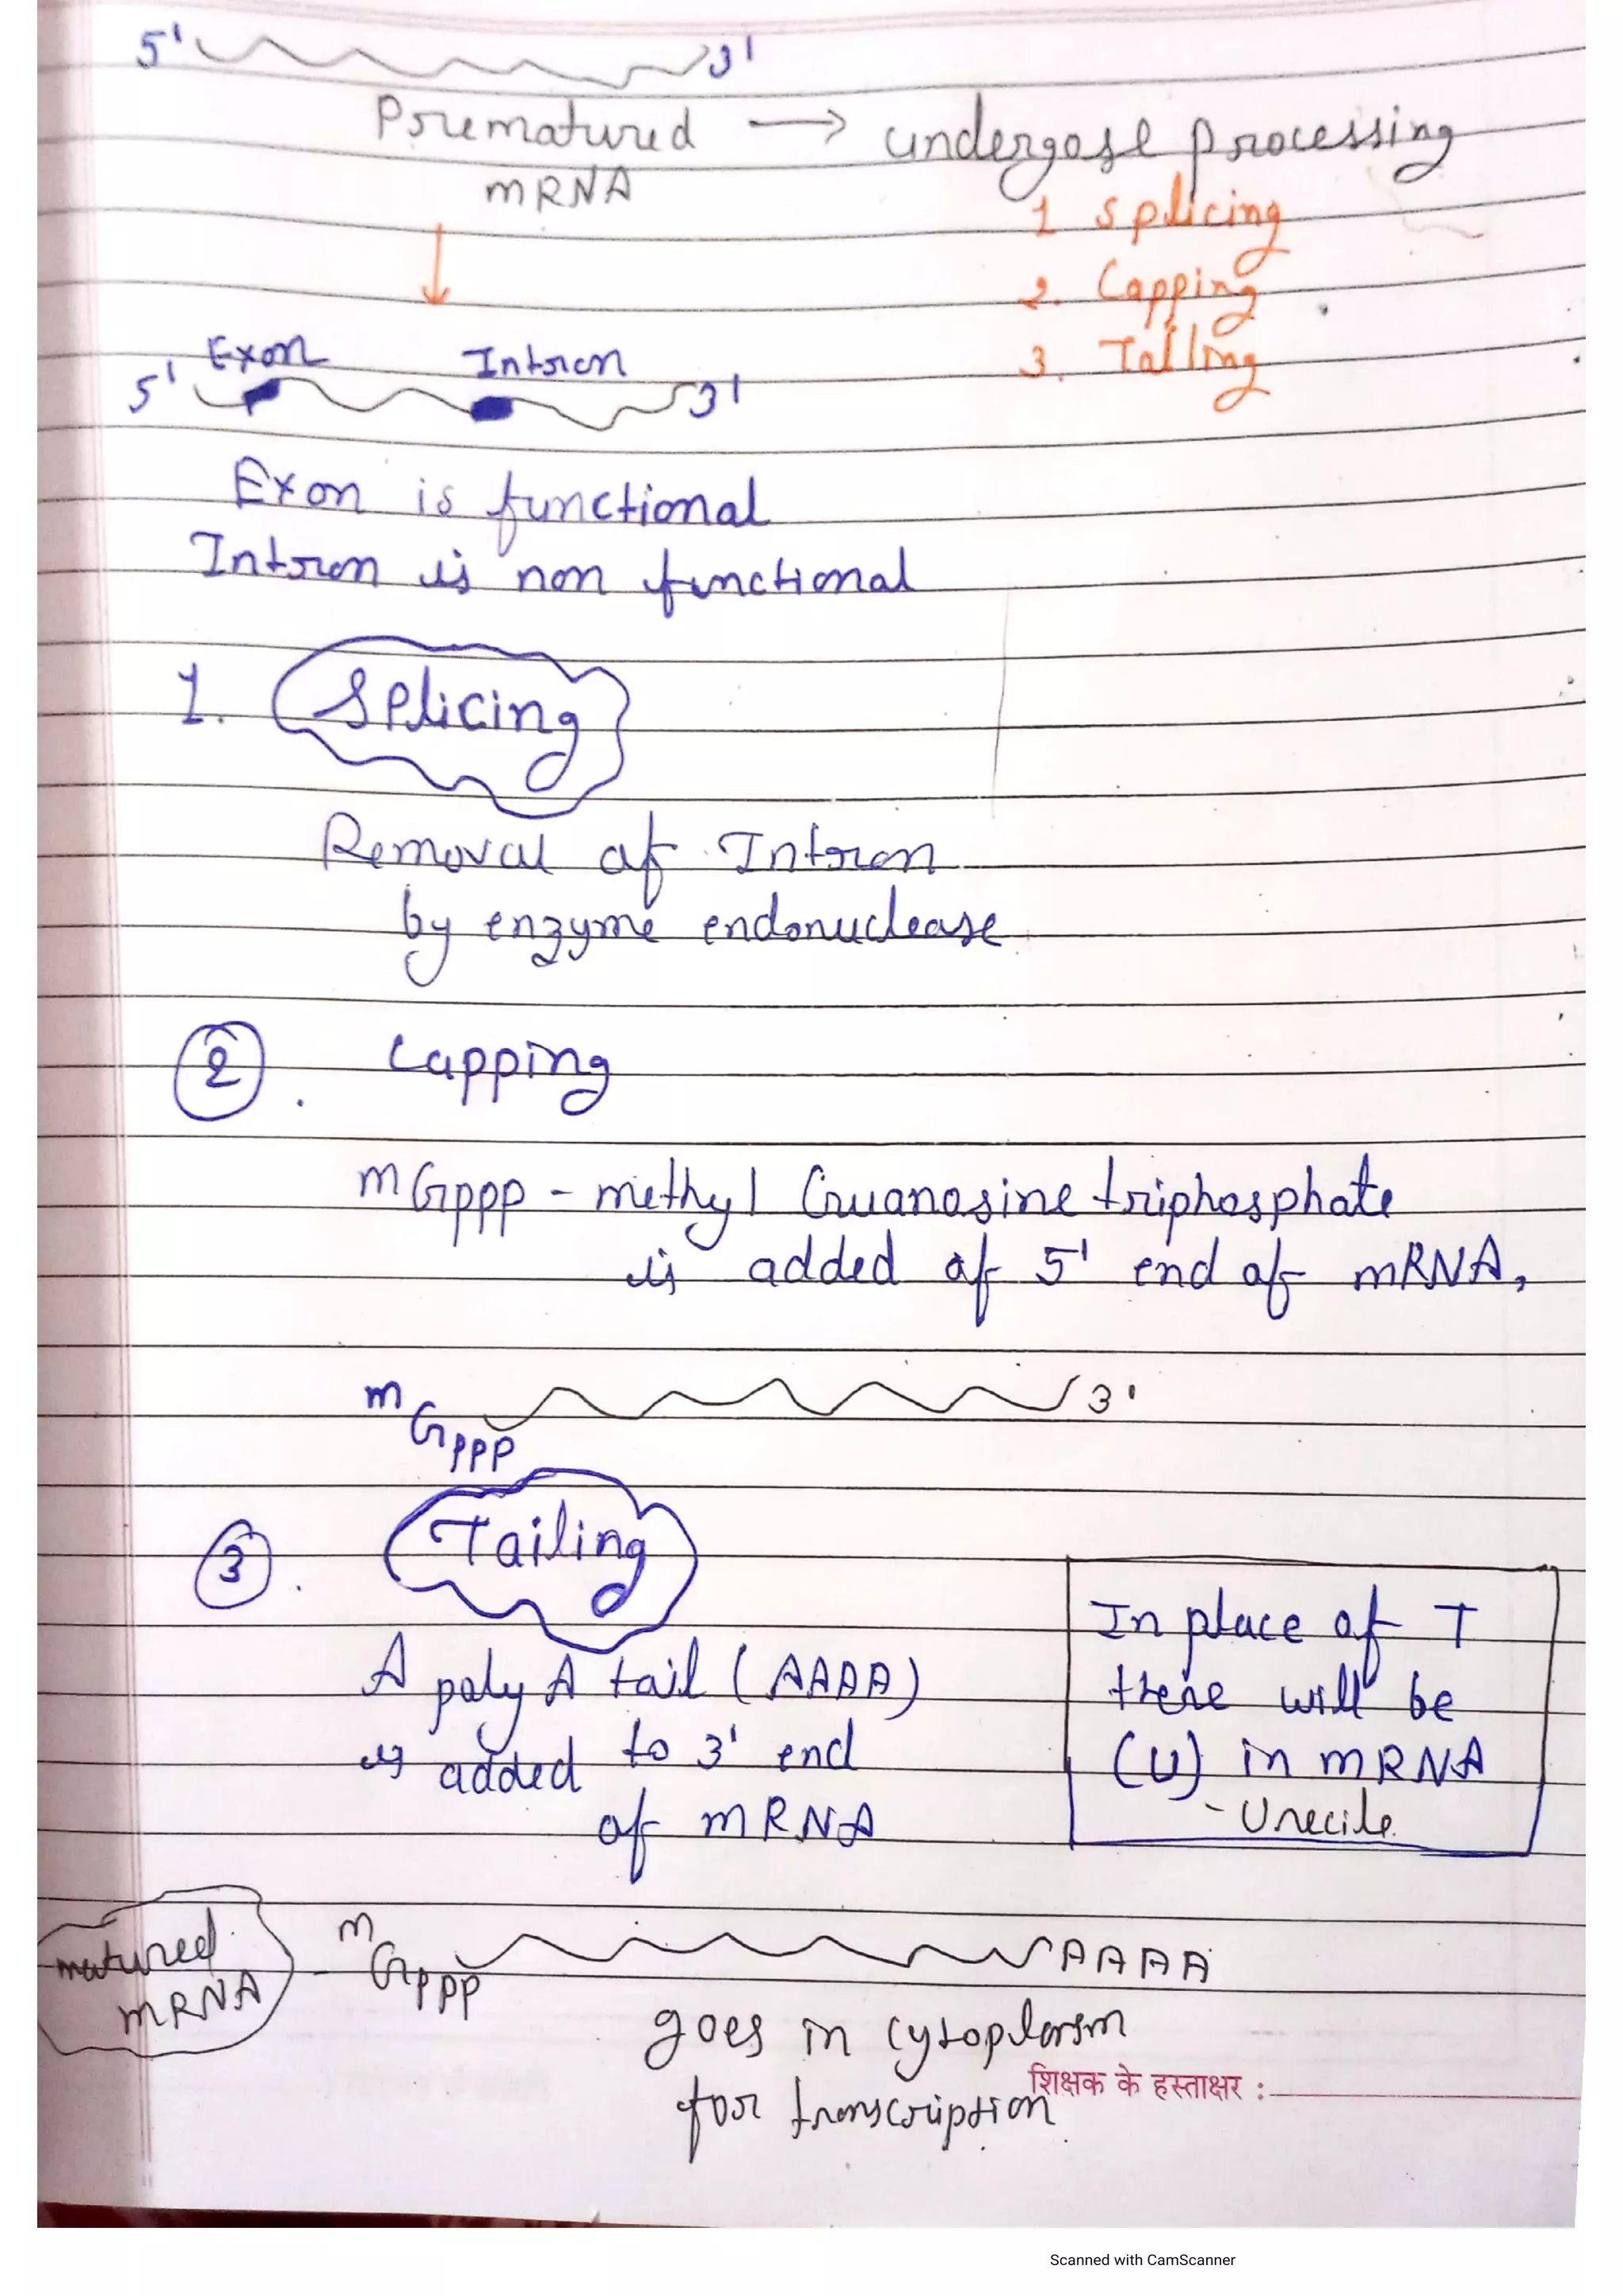 5' 3'
Prematured → undergose processing
mRNA
1 Splicing
2. Capping
3. Tailing
Exon Intron
5' 3'
Exon is functional
Intron is non functional
1. Splicing
Removal of Intron
by enzyme endonuclease
2. Capping
mGppp - methyl Guanosine triphosphate
is added of 5' end of mRNA,
mGppp 3'
3. Tailing
A poly A tail (AAAA)
is added to 3' end
of mRNA
In place of T
there will be
(U) in mRNA
- Urecile
matured
mRNA - mGppp AAAA
goes in cytoplasm
for transcription
शिक्षक के हस्ताक्षर :
Scanned with CamScanner